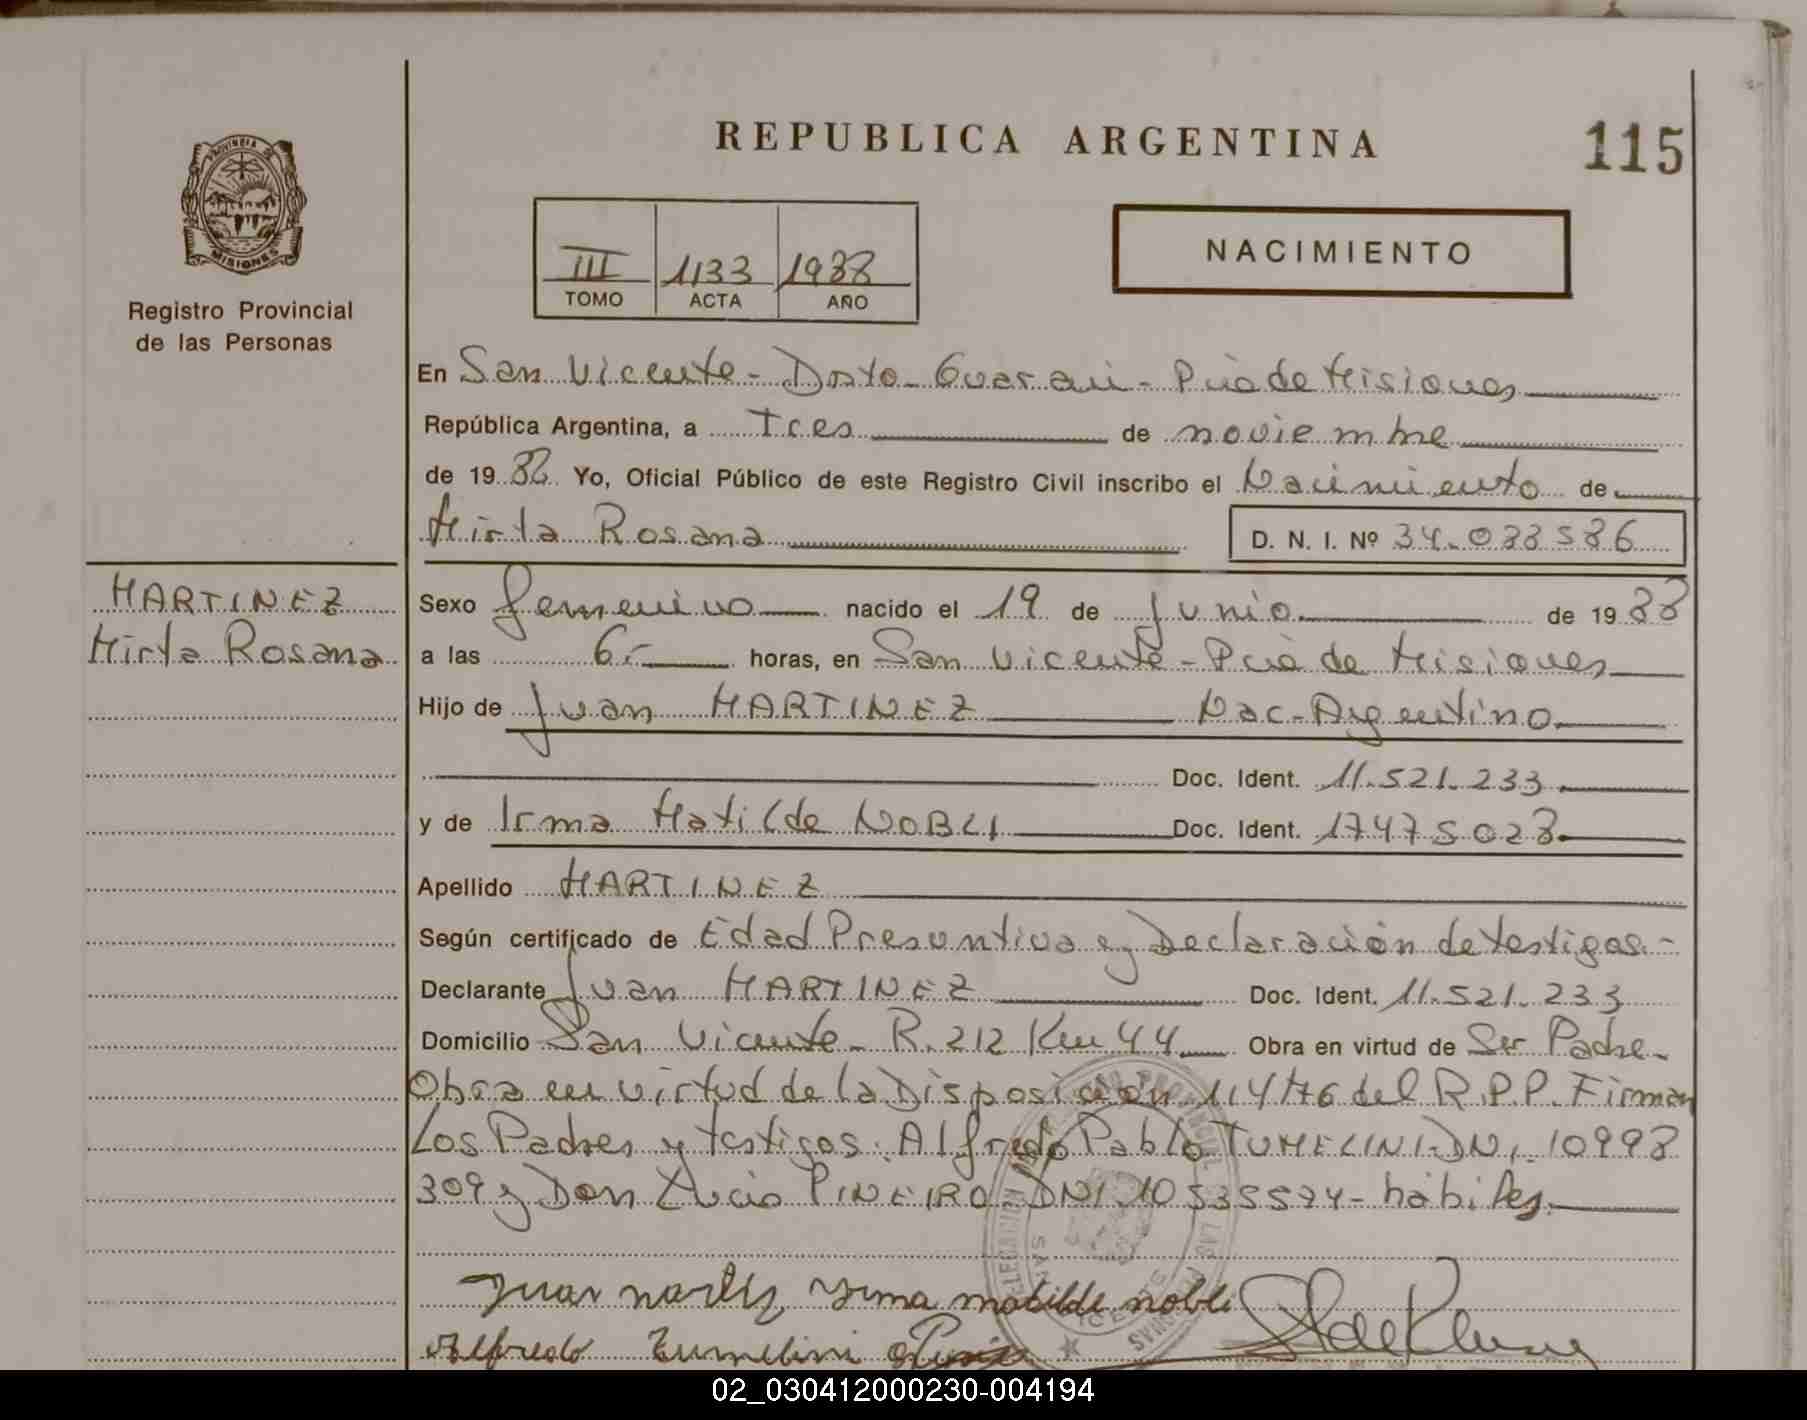 REPUBLICA ARGENTINA
115
PROVINCIA DE
MISIONES
Registro Provincial
de las Personas
III 1133 1988
TOMO ACTA AÑO
NACIMIENTO
En San Vicente - Dpto- Guarani - Pcia de Misiones
República Argentina, a Tres de noviembre
de 19 88 Yo, Oficial Público de este Registro Civil inscribo el Nacimiento de
Mirta Rosana D. N. I. Nº 34.088586
MARTINEZ
Mirta Rosana
Sexo femenino nacido el 19 de Junio de 19 88
a las 6.- horas, en San Vicente - Pcia de Misiones
Hijo de Juan MARTINEZ Nac- Argentino
Doc. Ident. 11.521.233
y de Irma Matilde NOBLI Doc. Ident. 17475028
Apellido MARTINEZ
Según certificado de Edad Presuntiva y Declaración de testigos.-
Declarante Juan MARTINEZ Doc. Ident. 11.521.233
Domicilio San Vicente - R. 212 Km 44 Obra en virtud de Ser Padre-
Obra en virtud de la Disposición 114/76 del R.P.P. Firman
Los Padres y testigos: Alfredo Pablo TUMELINI-DNI. 10998
309 y Don Lucio PINEIRO DNI 10535574 - hábiles.
Juan Irma matilde nobli
Alfredo Tumelini
02_030412000230-004194